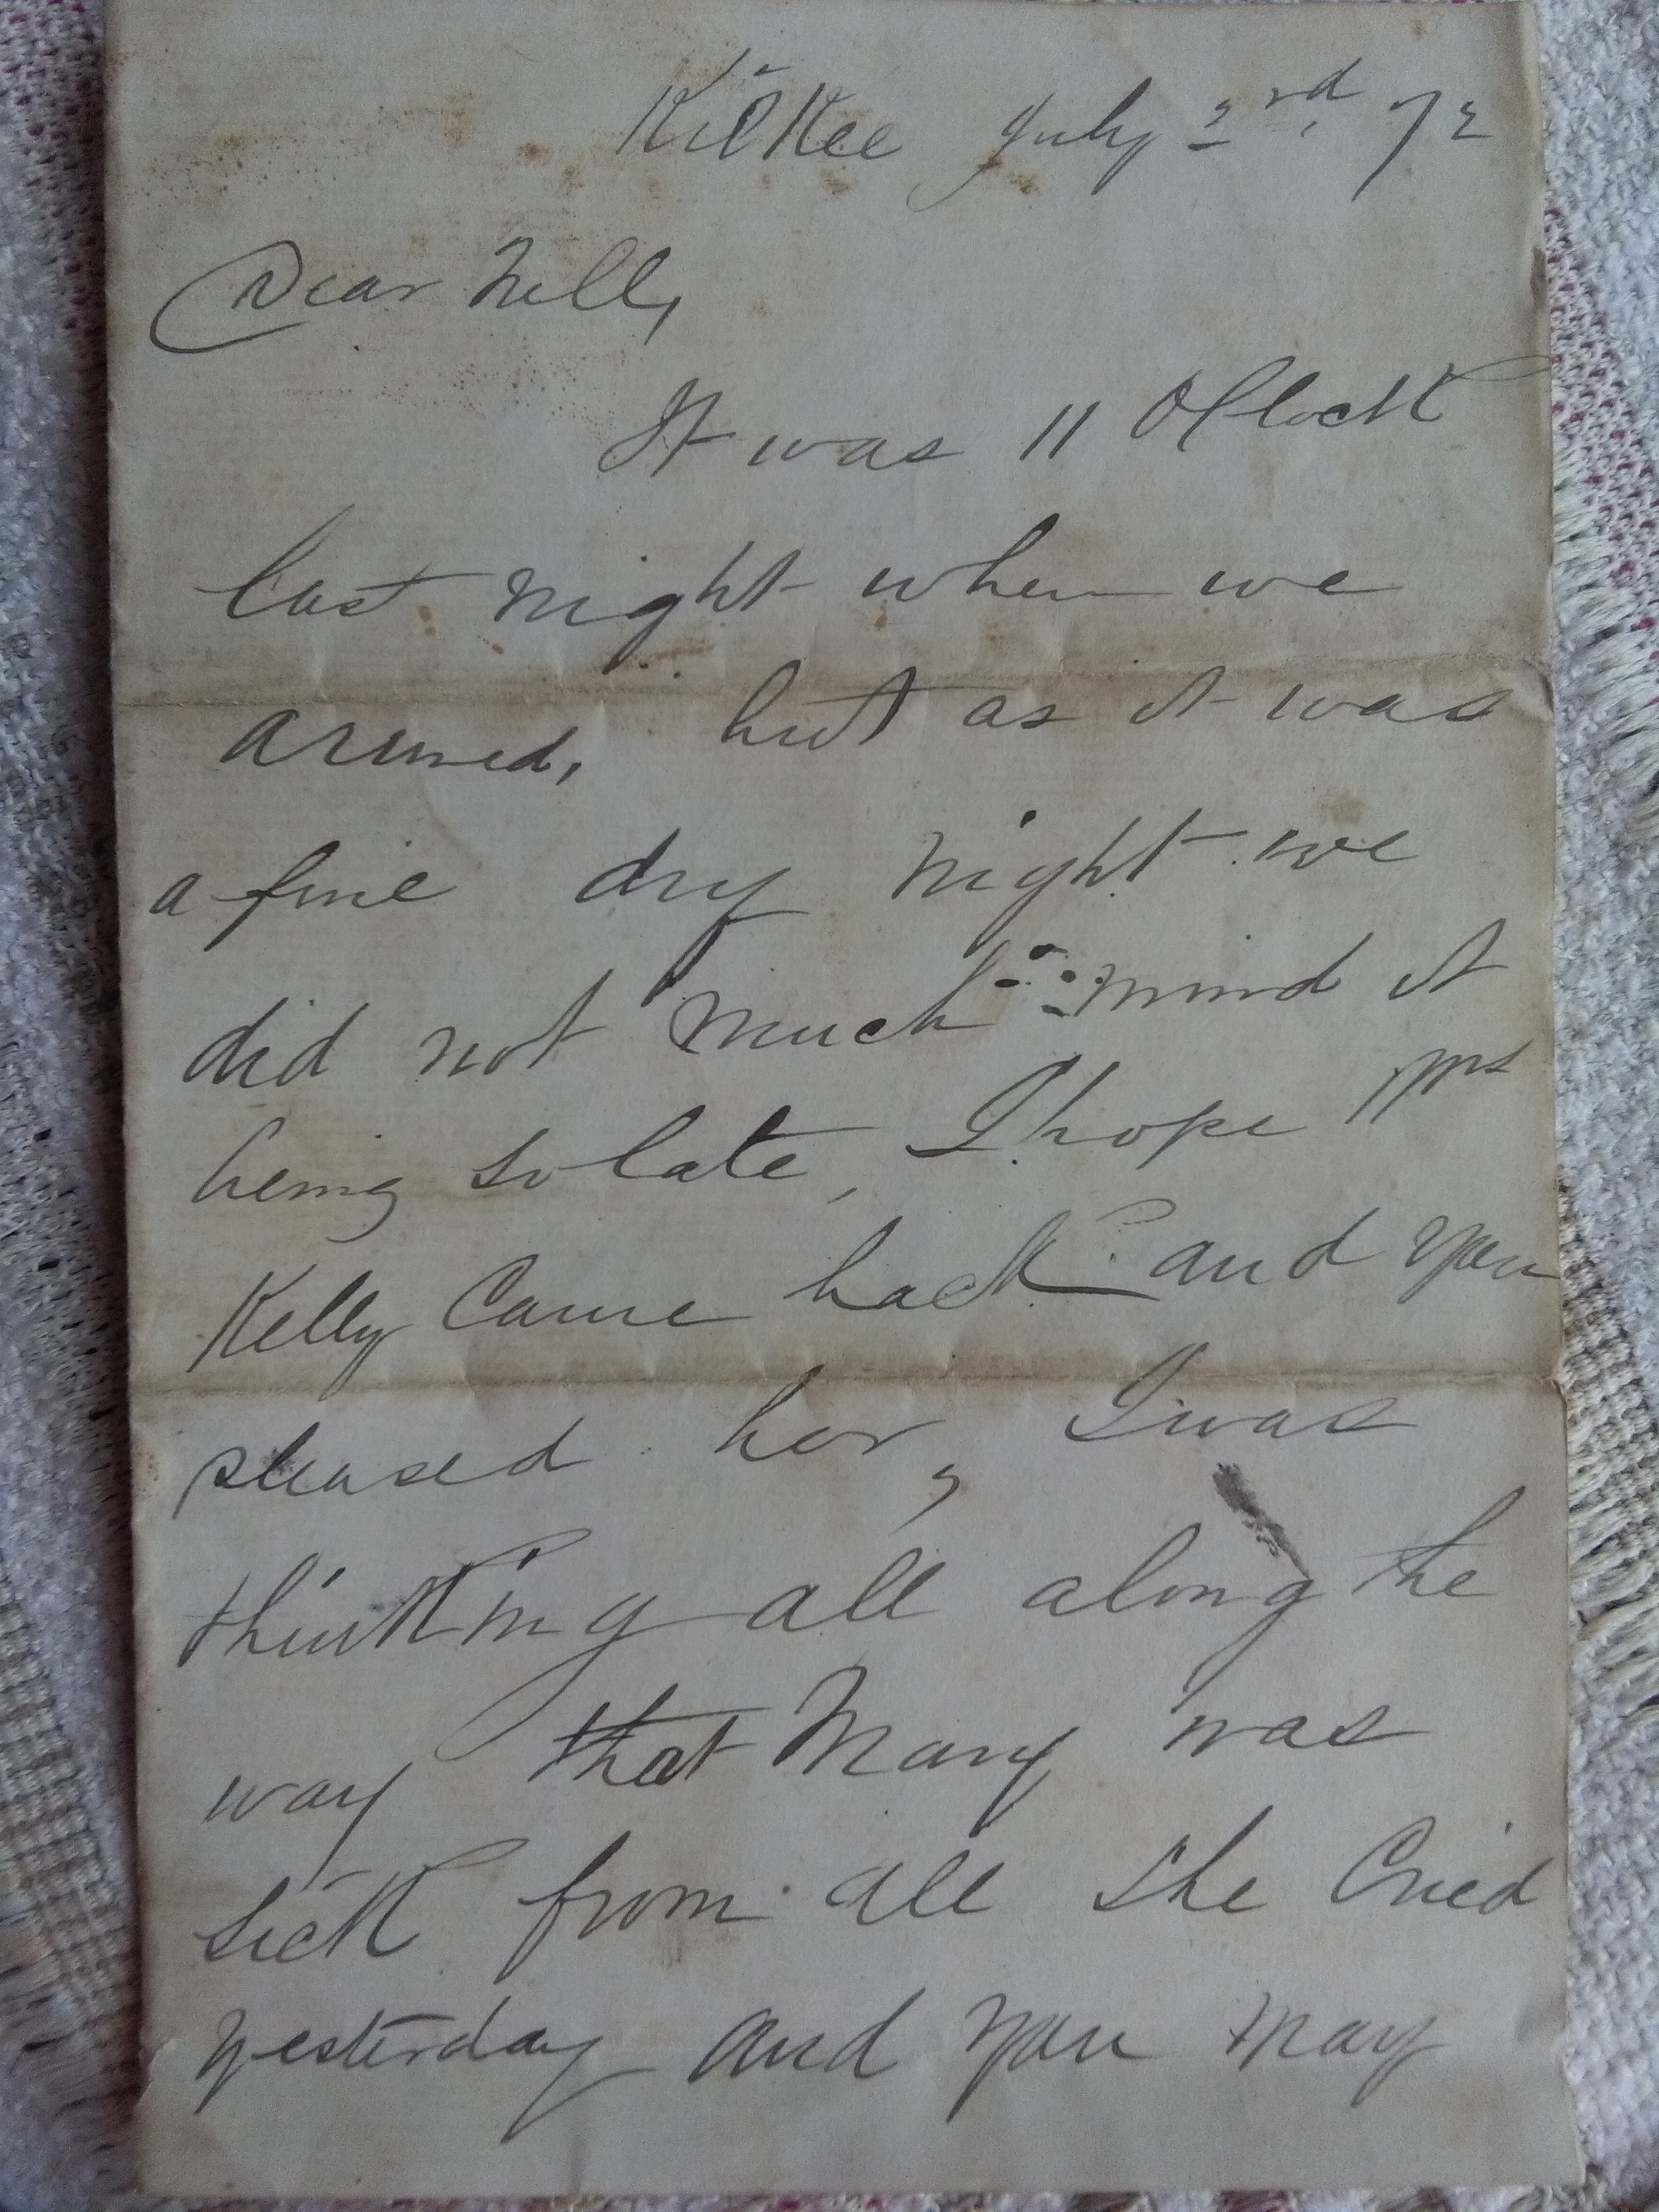 Kilkee July 3rd 72
Dear Nell,
It was 11 O'Clock
last night when we
arrived, but as it was
a fine dry night we
did not much mind it
being so late, I hope Mrs
Kelly Came back and you
pleased her, I was
thinking all along the
way that Mary was
sick from all she Cried
yesterday and you may